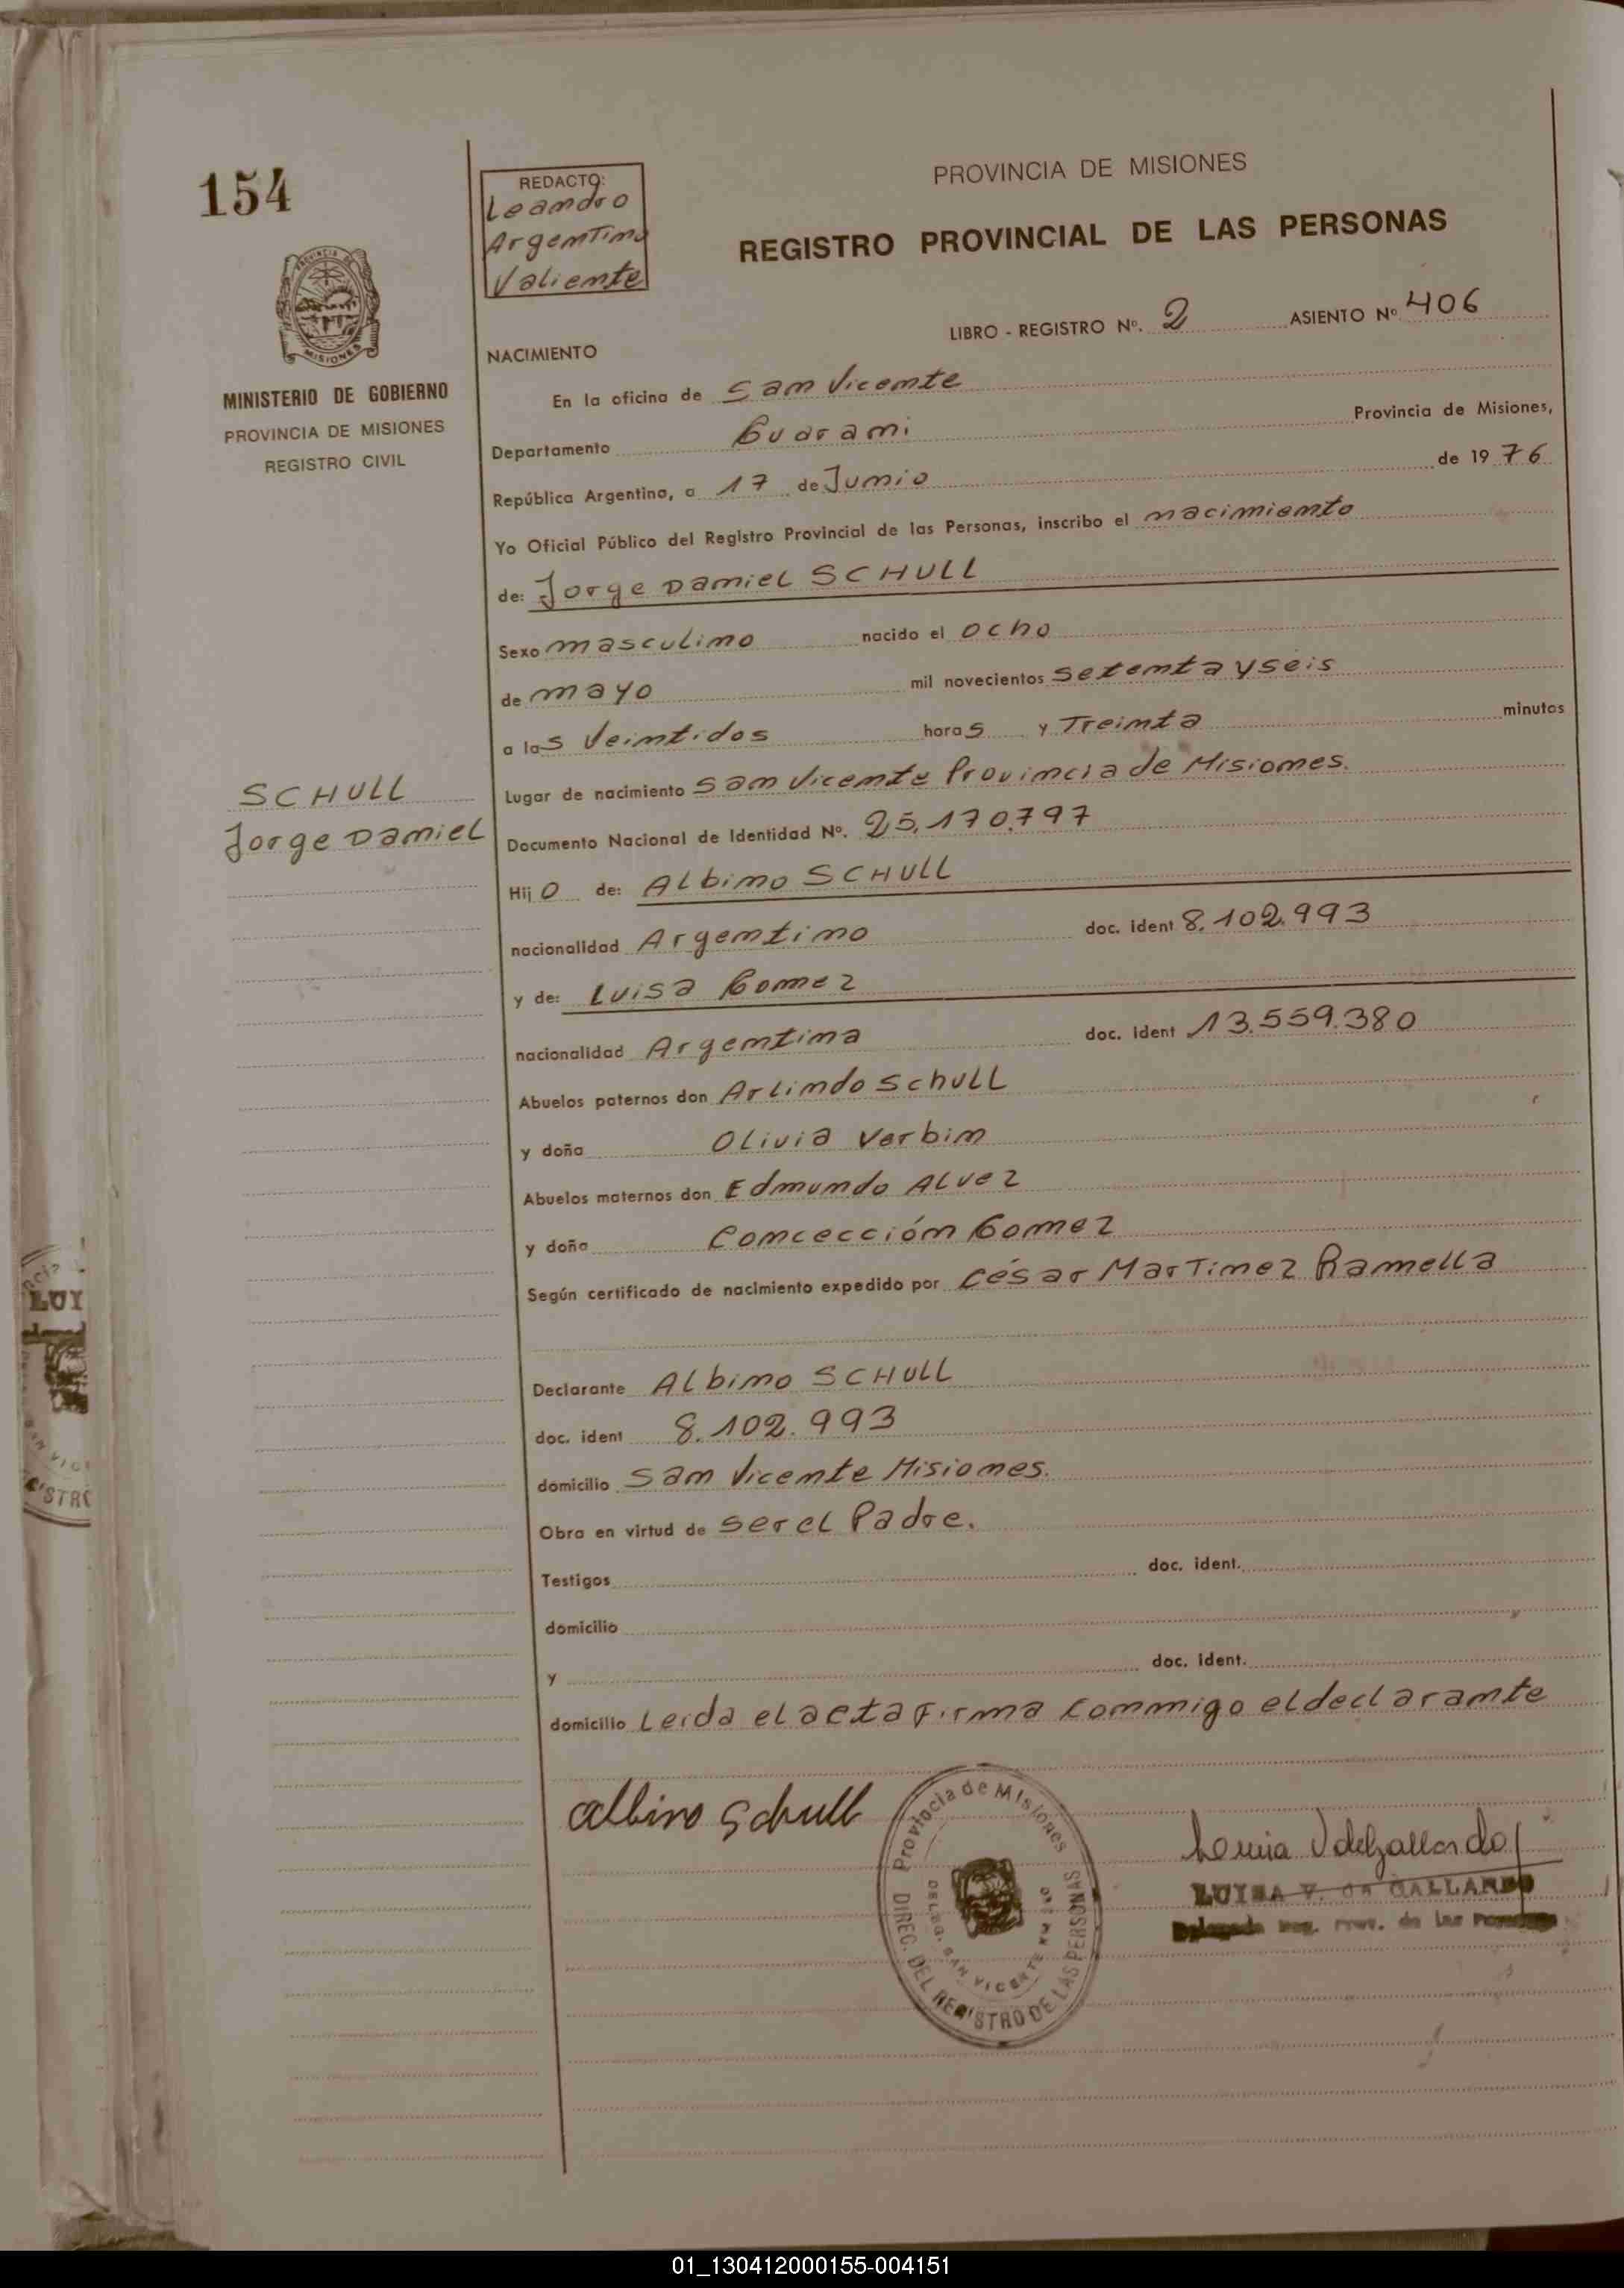 154
REDACTO:
Leandro
Argentino
Valiente
PROVINCIA DE MISIONES
REGISTRO PROVINCIAL DE LAS PERSONAS
LIBRO - REGISTRO Nº. 2 ASIENTO Nº 406
PROVINCIA DE
MISIONES
MINISTERIO DE GOBIERNO
PROVINCIA DE MISIONES
REGISTRO CIVIL
NACIMIENTO
En la oficina de San Vicente
Departamento Guarani Provincia de Misiones,
República Argentina, a 17 de Junio de 1976
Yo Oficial Público del Registro Provincial de las Personas, inscribo el nacimiento
de: Jorge Daniel SCHULL
Sexo masculino nacido el ocho
de mayo mil novecientos setenta y seis
a las veintidos horas y Treinta minutos
Lugar de nacimiento San Vicente Provincia de Misiones.
SCHULL
Jorge Daniel
Documento Nacional de Identidad Nº. 25.170.797
Hijo de: Albino SCHULL
nacionalidad Argentino doc. ident 8.102.993
y de: Luisa Gomez
nacionalidad Argentina doc. ident 13.559.380
Abuelos paternos don Arlindo Schull
y doña Olivia Verbin
Abuelos maternos don Edmundo Alvez
y doña Concección Gomez
Según certificado de nacimiento expedido por César Martinez Ramella
Declarante Albino SCHULL
doc. ident 8.102.993
domicilio San Vicente Misiones.
Obra en virtud de ser el Padre.
Testigos doc. ident.
domicilio
y doc. ident.
domicilio Leida el acta Firma conmigo el declarante
Albino Schull
Provincia de Misiones
DIREC. DEL REGISTRO DE LAS PERSONAS
DELEG. SAN VICENTE
LUISA V. DE GALLARDO
Delegada Reg. Prov. de las Personas
LUI
SAN VICE
GISTRO
01_130412000155-004151